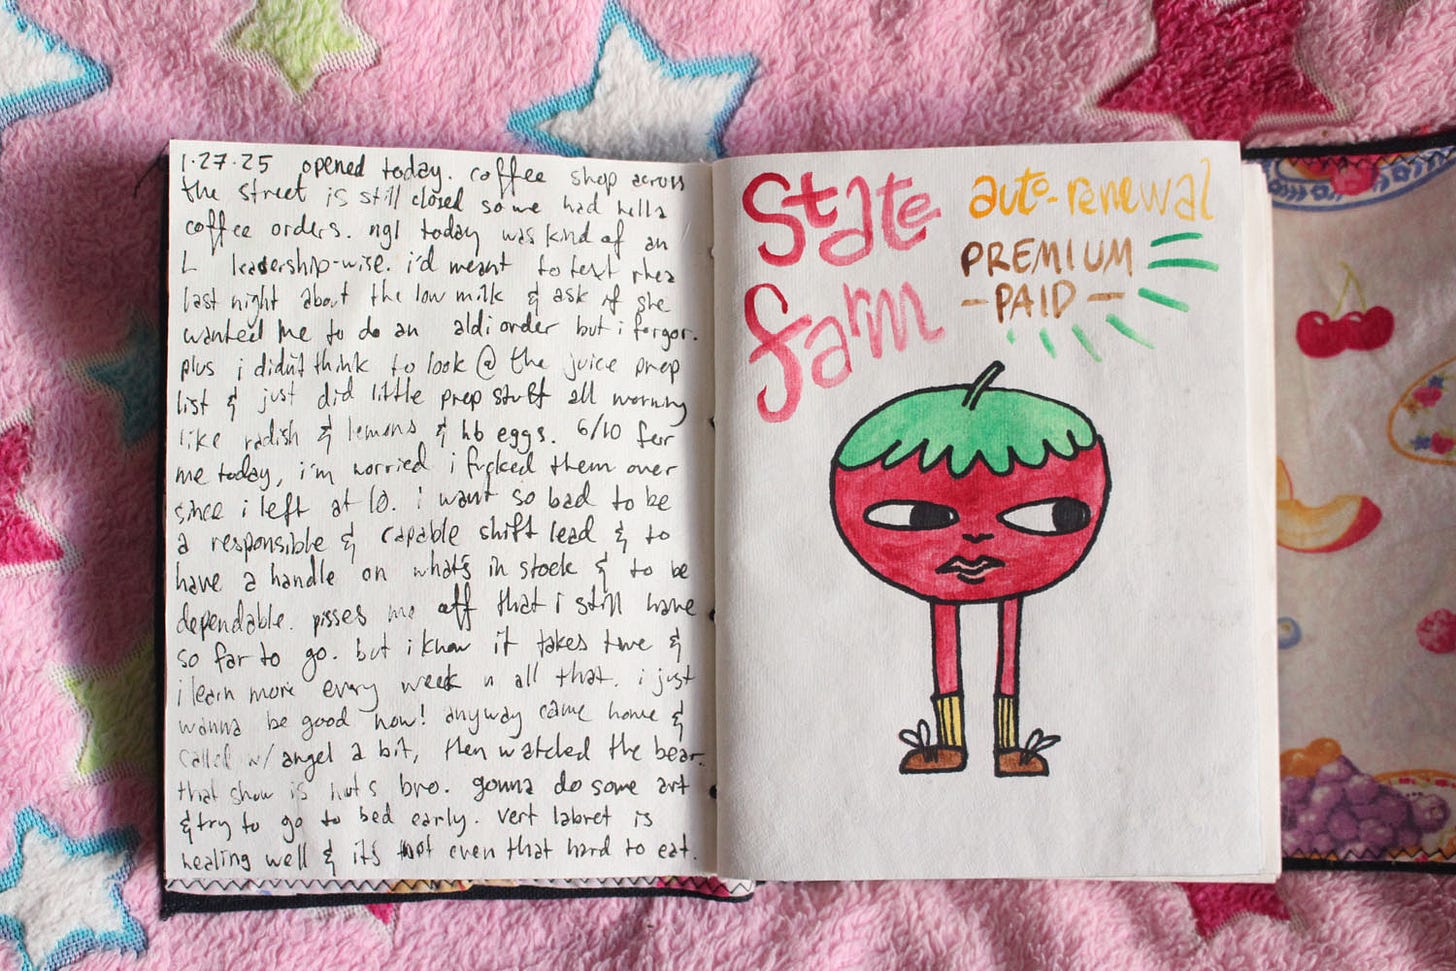 1.27.25 opened today. coffee shop across
the street is still closed so we had hella
coffee orders. ngl today was kind of an
L leadership-wise. i'd meant to text rhea
last night about the low milk & ask if she
wanted me to do an aldi order but i forgor.
plus i didn't think to look @ the juice prep
list & just did little prep stuff all morning
like radish & lemons & hb eggs. 6/10 for
me today, i'm worried i fvcked them over
since i left at 10. i want so bad to be
a responsible & capable shift lead & to
have a handle on what's in stock & to be
dependable. pisses me off that i still have
so far to go. but i know it takes time &
i learn more every week n all that. i just
wanna be good now! anyway came home &
called w/ angel a bit, then watched the bear.
that show is nuts bro. gonna do some art
& try to go to bed early. vert labret is
healing well & it's not even that hard to eat.
State
farm
auto-renewal
PREMIUM
-PAID-